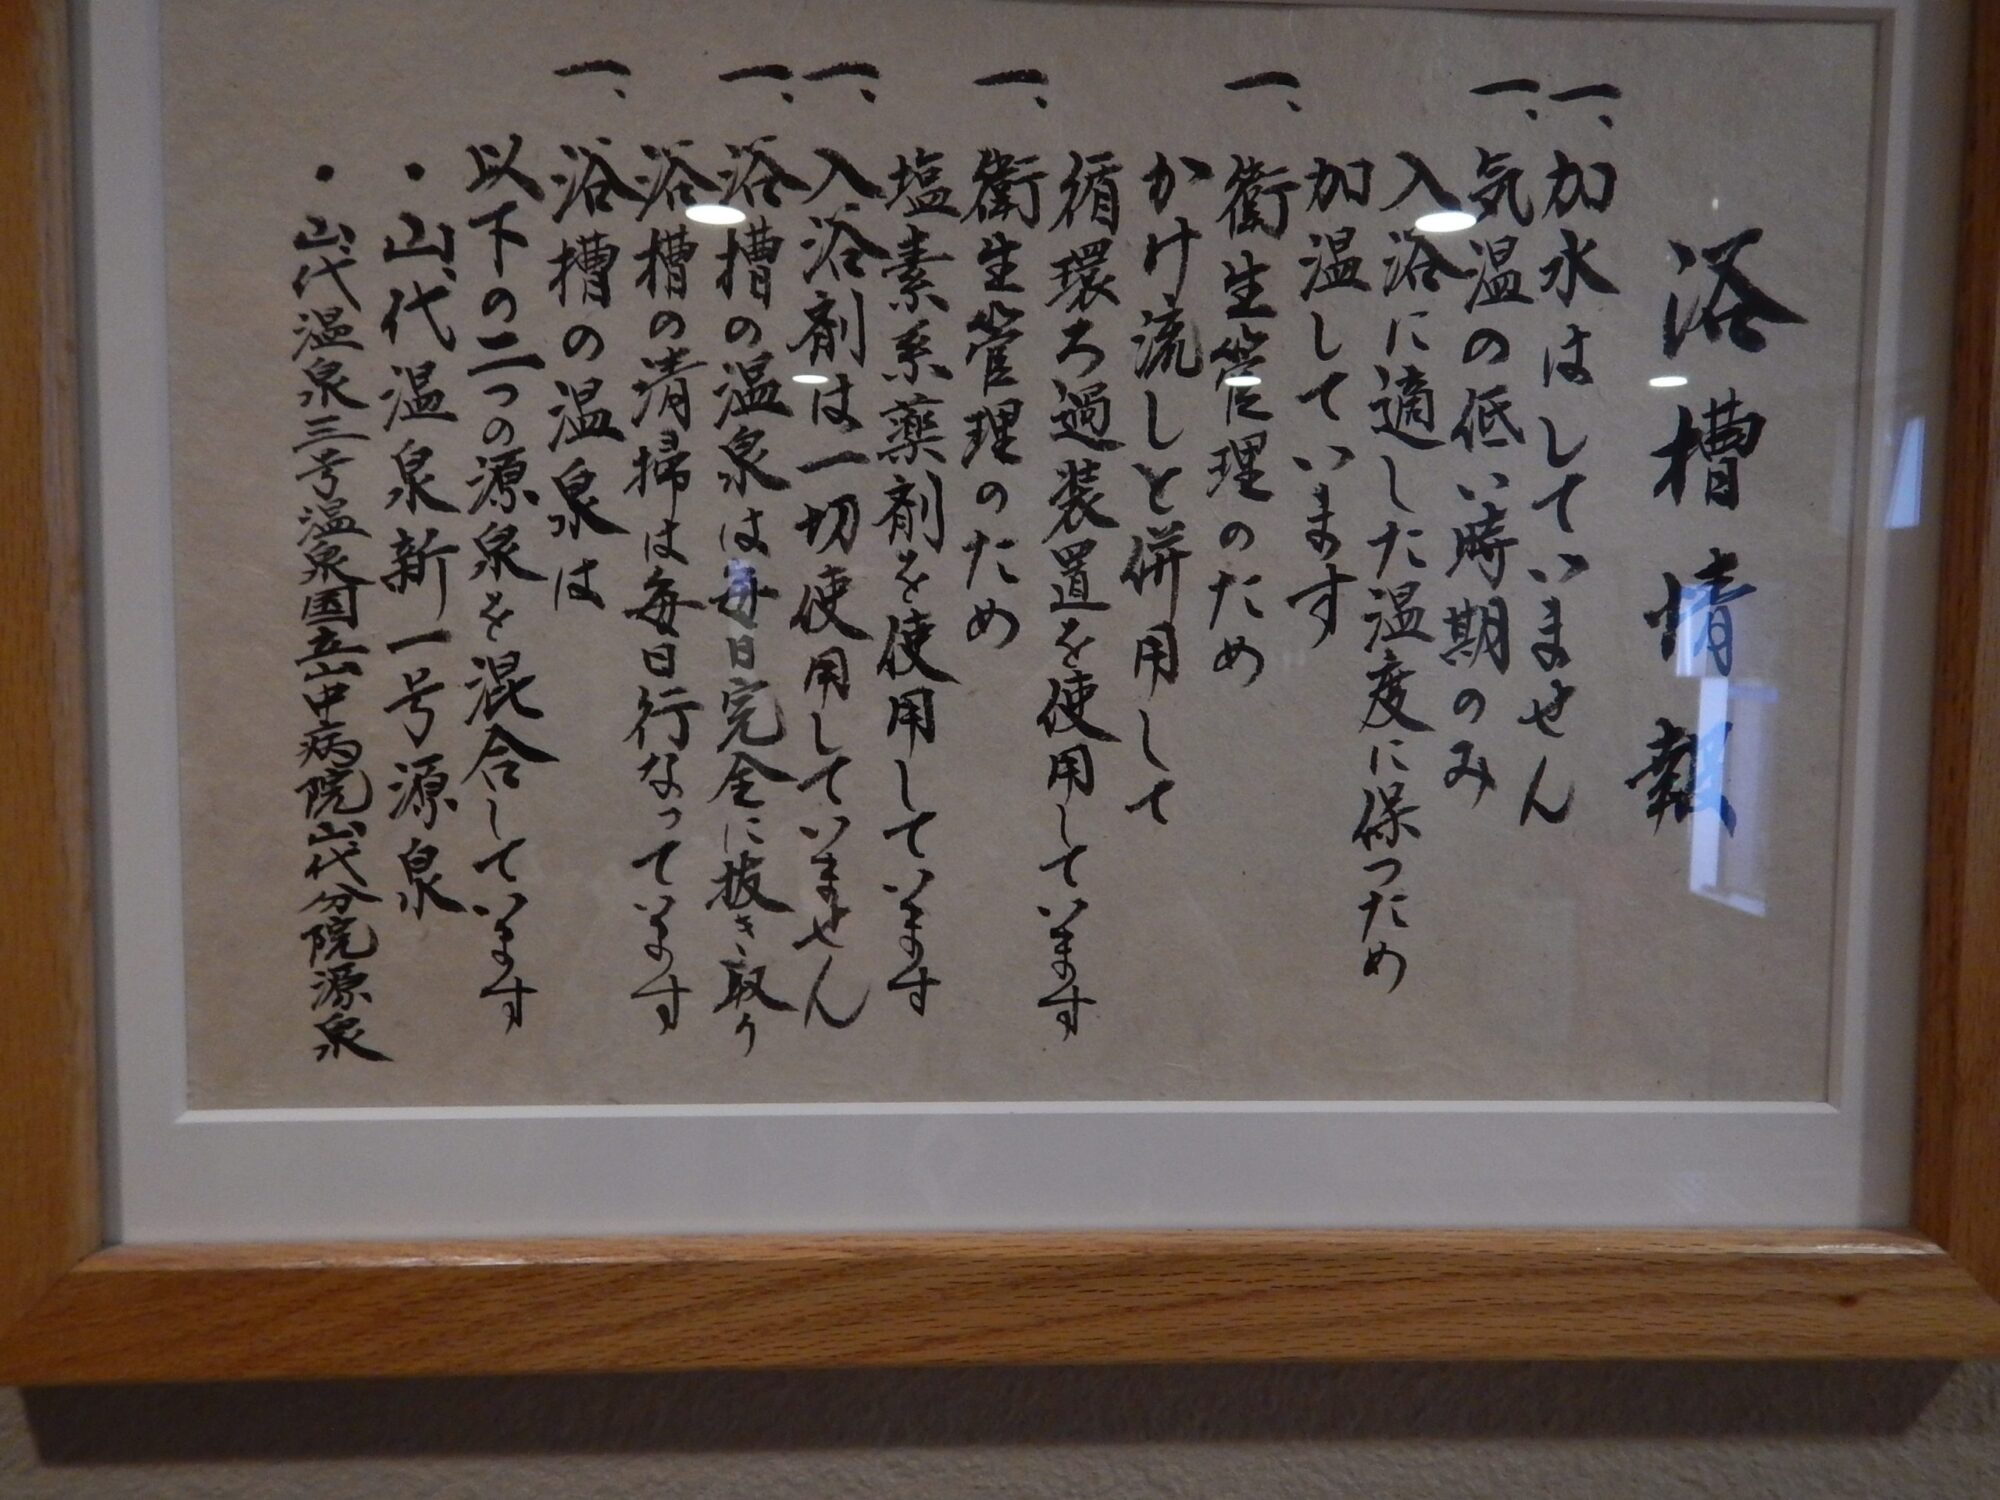 浴槽情報
一、加水はしていません
一、気温の低い時期のみ
入浴に適した温度に保つため
加温しています
一、衛生管理のため
かけ流しと併用して
循環ろ過装置を使用しています
一、衛生管理のため
塩素系薬剤を使用しています
一、入浴剤は一切使用していません
一、浴槽の温泉は毎日完全に抜き取り
浴槽の清掃は毎日行なっています
一、浴槽の温泉は
以下の二つの源泉を混合しています
・山代温泉新一号源泉
・山代温泉三号温泉国立山中病院山代分院源泉